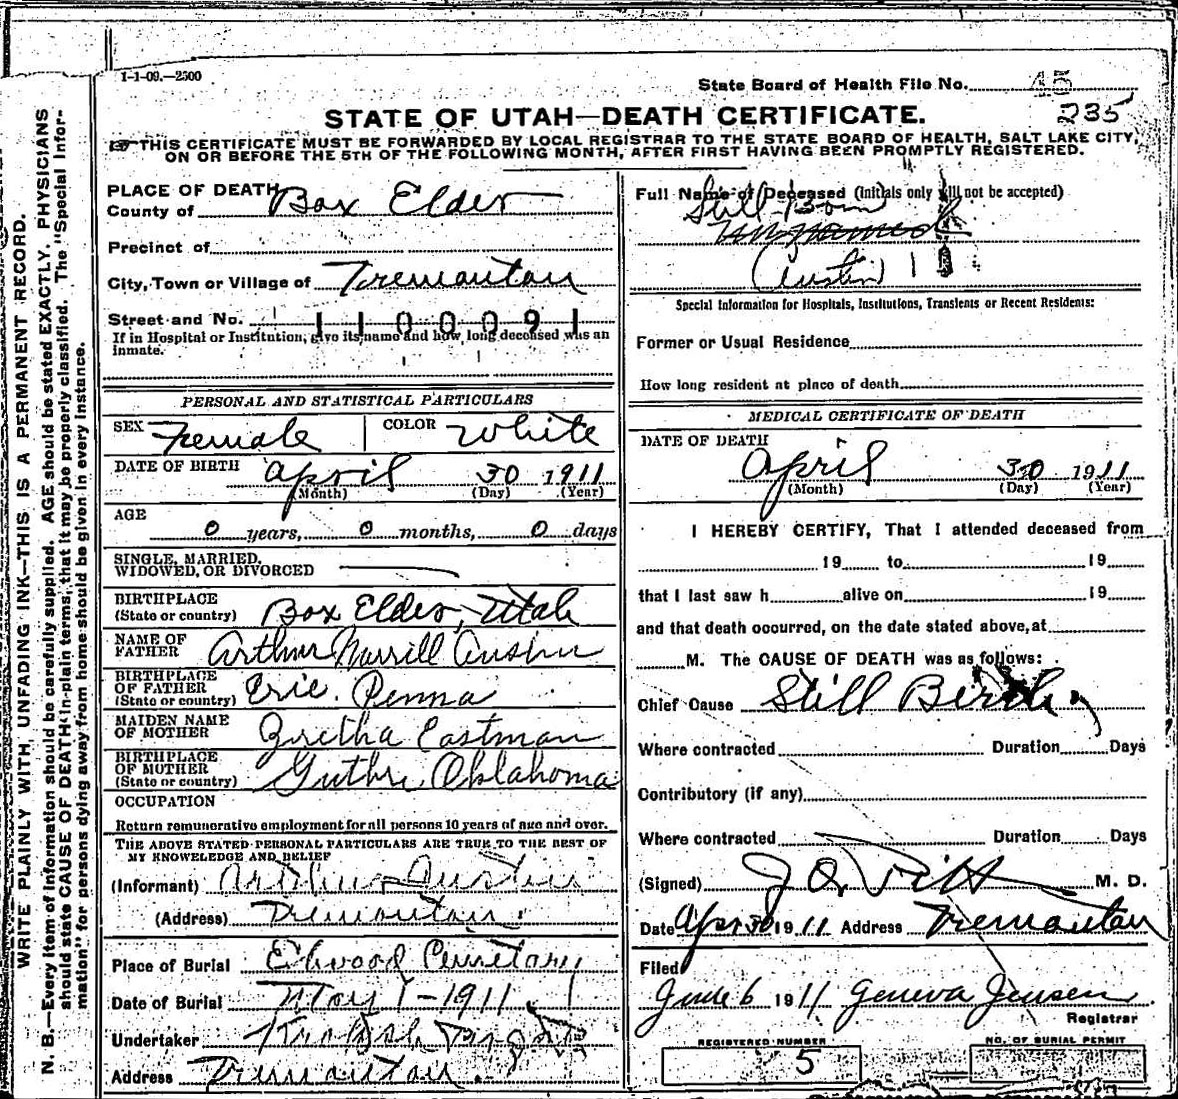 1-1-09.—2500
State Board of Health File No. 45
235
STATE OF UTAH—DEATH CERTIFICATE.
THIS CERTIFICATE MUST BE FORWARDED BY LOCAL REGISTRAR TO THE STATE BOARD OF HEALTH, SALT LAKE CITY,
ON OR BEFORE THE 5TH OF THE FOLLOWING MONTH, AFTER FIRST HAVING BEEN PROMPTLY REGISTERED.
WRITE PLAINLY WITH UNFADING INK—THIS IS A PERMANENT RECORD.
N. B.—Every item of information should be carefully supplied. AGE should be stated EXACTLY. PHYSICIANS
should state CAUSE OF DEATH in plain terms, that it may be properly classified. The "Special Infor-
mation" for persons dying away from home should be given in every instance.
PLACE OF DEATH
County of Box Elder
Precinct of
City, Town or Village of Tremonton
Street and No. 1100091
If in Hospital or Institution, give its name and how long deceased was an
inmate.
PERSONAL AND STATISTICAL PARTICULARS
SEX Female COLOR White
DATE OF BIRTH April 30 1911
(Month) (Day) (Year)
AGE
0 years, 0 months, 0 days
SINGLE, MARRIED,
WIDOWED, OR DIVORCED
BIRTHPLACE
(State or country) Box Elder, Utah
NAME OF
FATHER Arthur Merrill Austin
BIRTHPLACE
OF FATHER
(State or country) Erie. Penna
MAIDEN NAME
OF MOTHER Gretha Eastman
BIRTHPLACE
OF MOTHER
(State or country) Guthri Oklahoma
OCCUPATION
Return remunerative employment for all persons 10 years of age and over.
THE ABOVE STATED PERSONAL PARTICULARS ARE TRUE TO THE BEST OF
MY KNOWLEDGE AND BELIEF
(Informant) Arthur Austin
(Address) Tremonton.
Place of Burial Elwood Cemetary
Date of Burial May 1-1911.
Undertaker
Address Tremonton.
Full Name of Deceased (Initials only will not be accepted)
Still-Born
Unnamed
(Austin)
Special Information for Hospitals, Institutions, Transients or Recent Residents:
Former or Usual Residence
How long resident at place of death
MEDICAL CERTIFICATE OF DEATH
DATE OF DEATH
April 30 1911
(Month) (Day) (Year)
I HEREBY CERTIFY, That I attended deceased from
19 to 19
that I last saw h alive on 19
and that death occurred, on the date stated above, at
M. The CAUSE OF DEATH was as follows:
Chief Cause Still Birth
Where contracted Duration Days
Contributory (if any)
Where contracted Duration Days
(Signed) M. D.
Date Apr 30 1911 Address Tremonton
Filed
June 6 1911 Geneva Jensen
Registrar
REGISTERED NUMBER
5
NO. OF BURIAL PERMIT